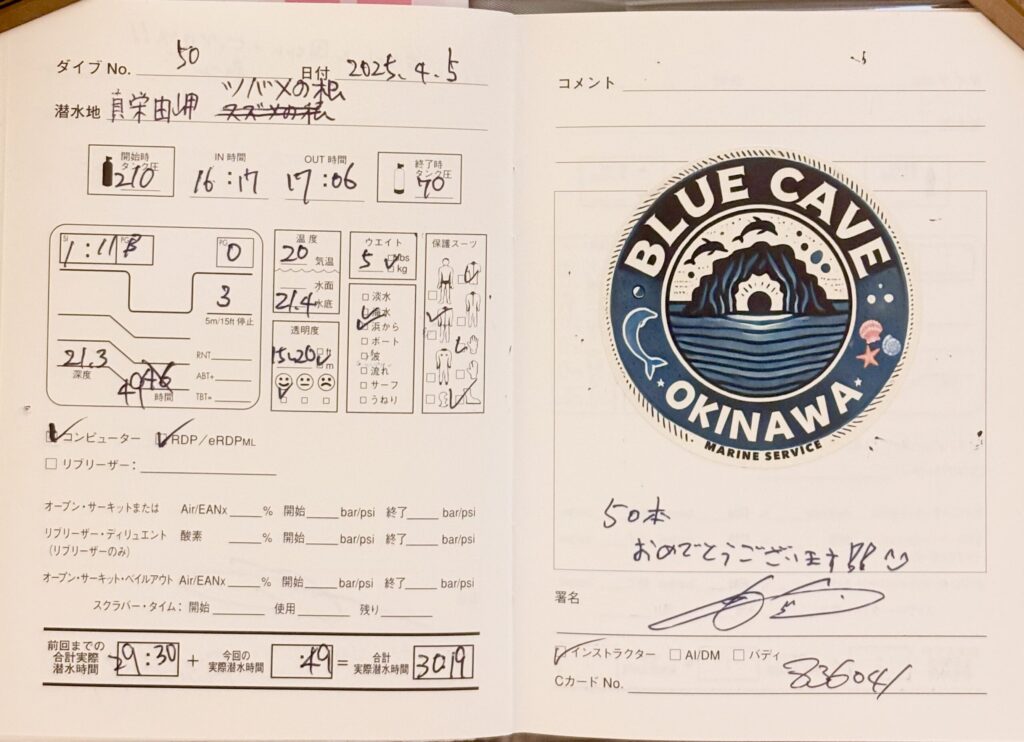 ダイブ No. 50 日付 2025.4.5
ツバメの根
潜水地 真栄田岬 スズメの根
開始時タンク圧 210 IN 時間 16:17 OUT 時間 17:06 終了時タンク圧 70
SI 1:11 PG B PG 0
3
5m/15ft 停止
21.3 深度
49 46 時間
RNT
ABT+
TBT=
温度
20 気温
水面
21.4 水底
透明度
15~20 m
ウエイト
5 lbs kg
淡水
海水
浜から
ボート
波
流れ
サーフ
うねり
保護スーツ
コンピューター RDP/eRDPML
リブリーザー:
オープン・サーキットまたは Air/EANx % 開始 bar/psi 終了 bar/psi
リブリーザー・ディリュエント 酸素 % 開始 bar/psi 終了 bar/psi
(リブリーザーのみ)
オープン・サーキット・ベイルアウト Air/EANx % 開始 bar/psi 終了 bar/psi
スクラバー・タイム: 開始 使用 残り
前回までの合計実際潜水時間 29:30 + 今回の実際潜水時間 :49 = 合計実際潜水時間 30:19
コメント
BLUE CAVE
OKINAWA
MARINE SERVICE
50本
おめでとうございます!!
署名
インストラクター AI/DM バディ
Cカード No. 836041